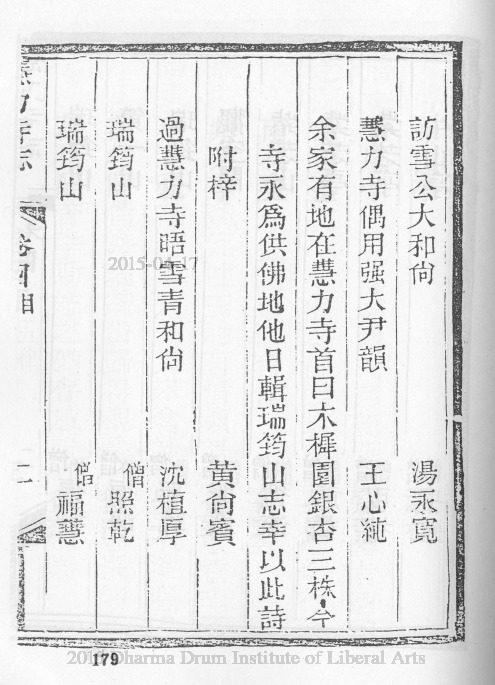 訪雪公大和尙 湯永寬
慧力寺偶用强大尹韻 王心純
余家有地在慧力寺首曰木樨園銀杏三株今
寺永爲供佛地他日輯瑞筠山志幸以此詩
附梓 黄尙賓
過慧力寺晤雪青和尙 沈植厚
瑞筠山 僧照乾
瑞筠山 僧福慧
慧力寺志 卷四目 二
179
2015-04-17
Dharma Drum Institute of Liberal Arts